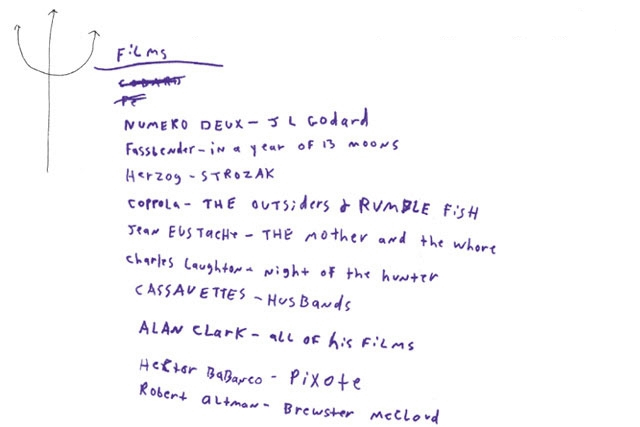 FiLMS
GODARD
NUMERO DEUX - J L Godard
Fassbender - in a year of 13 moons
Herzog - STROZAK
COPPOLA - THE OUTSiders & RUMBLE FiSH
Jean EUSTACHE - THE Mother and the whore
Charles Laughton - Night of the hunter
CASSAVETTES - HUSBands
ALAN CLARK - all OF his FiLMS
Hector BaBanco - Pixote
Robert altman - Brewster McCloud